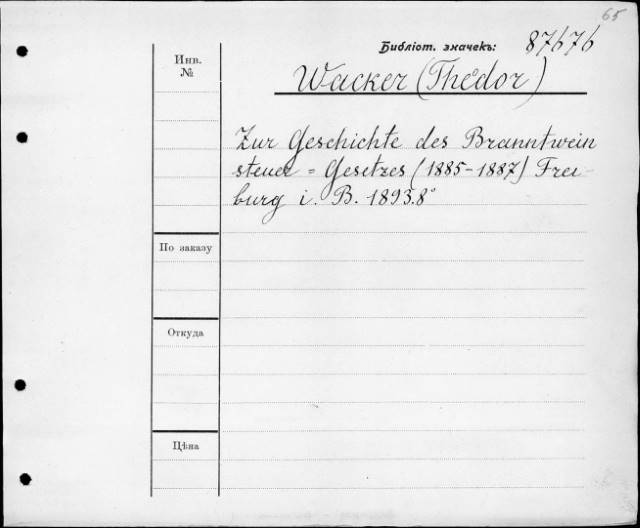 65
Библіот. значекъ: 87676
Инв. №
Wacker (Thedor)
Zur Geschichte des Branntwein
steuer = Gesetzes (1885-1887) Frei-
burg i. B. 1893.8°
По заказу
Откуда
Цѣна